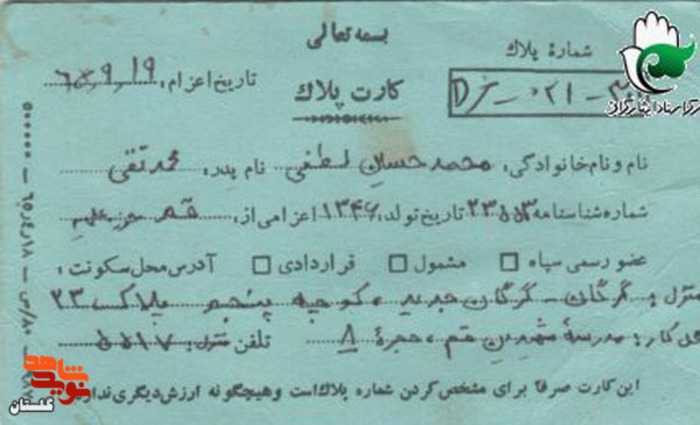 بسمه تعالی
شمارهٔ پلاك
تاریخ اعزام: ۶۵٫۹٫۱۹
کارت پلاك
نام و نام خانوادگی: محمد حسین لطفی نام پدر: محمد تقی
شماره شناسنامه ۲۳۵۵۳ تاریخ تولد: ۱۳۴۶ اعزامی از: قم
عضو رسمی سپاه □ مشمول □ قراردادی □ آدرس محل سکونت:
منزل: گرگان - گرگان جدید، کوچه پنجم پلاک ۲۳
محل کار: مدرسهٔ شهیدین قم، حجرهٔ ۸ تلفن منزل: ۵۵۱۷
این کارت صرفا برای مشخص کردن شماره پلاك است و هیچگونه ارزش دیگری ندارد
شاهد
نوید
گلستان